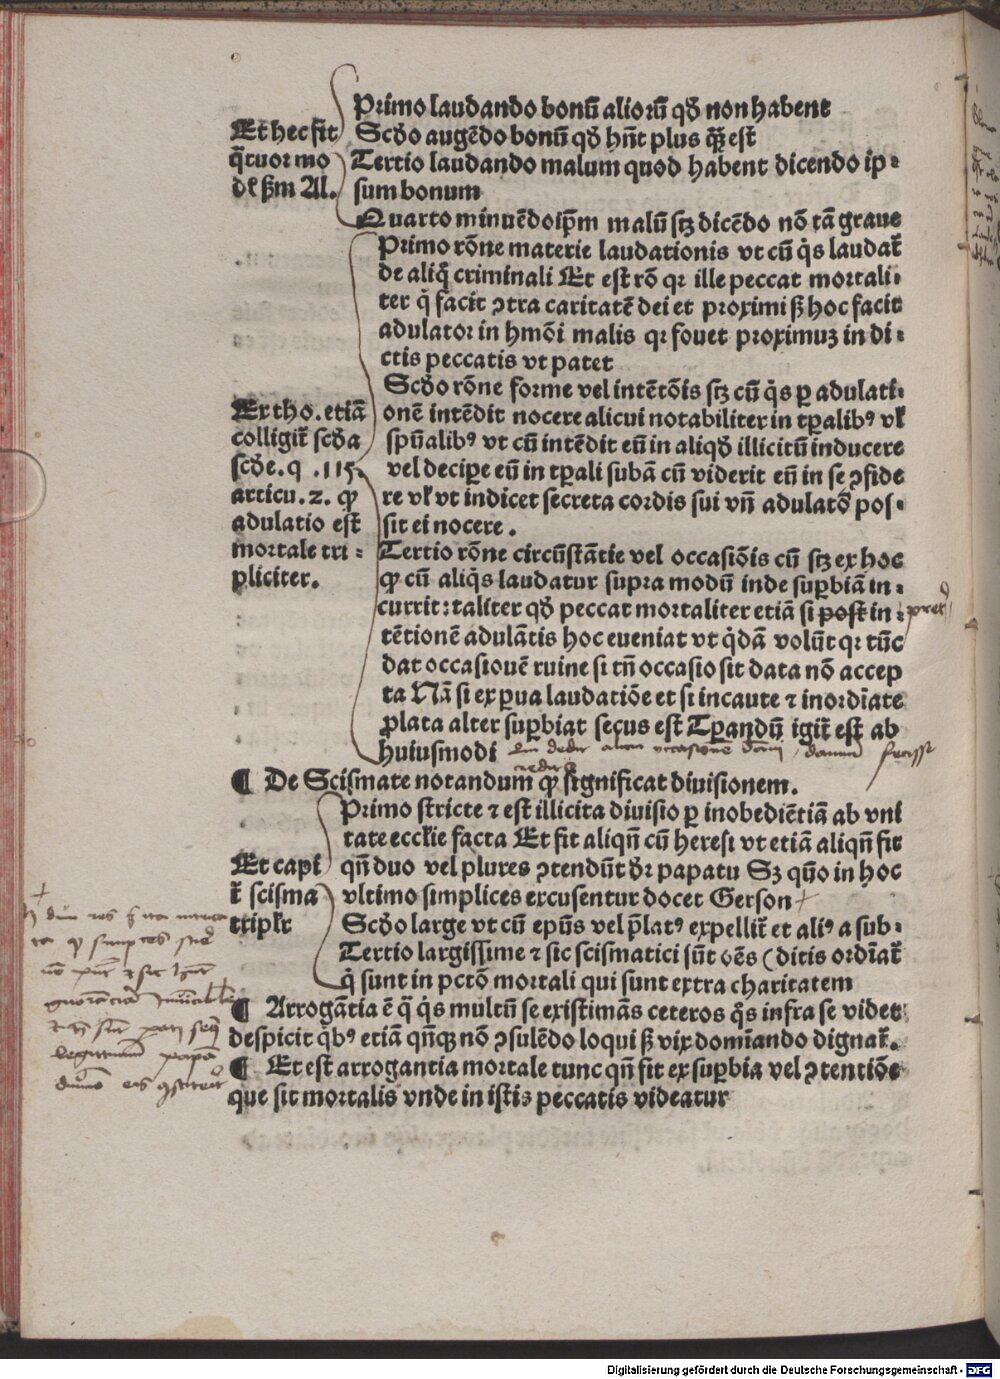 Primo laudando bonū aliorū qð non habent
Et hec fit
Scðo augēdo bonū qð hn̄t plus q̄ȝ est
q̄tuor mo
Tertio laudando malum quod habent dicendo ip-
dꝭ ẜm Al.
sum bonum
Quarto minuēdo ip̄m malū stȝ dicēdo nō tā graue
Primo rōne materie laudationis vt cū q̇s laudat̄
de aliq̄ criminali Et est rō qꝛ ille peccat mortali-
ter q̇ facit ꝯtra caritatē dei et proximi ß hoc facit
adulator in hmōi malis qꝛ fouet proximuȝ in di-
ctis peccatis vt patet
Scðo rōne forme vel intētōis stȝ cū q̇s ꝑ adulati-
Ex tho. etiā
onē intēdit nocere alicui notabiliter in tꝑalibꝰ vł
colligit̄ scða
spūalibꝰ vt cū intēdit eū in aliqð illicitū inducere
scðe. q .115.
vel deciꝑe eū in tꝑali subā cū viderit eū in se ꝯfide
articu. 2. ꝙ
re vł vt indicet secreta cordis sui vn̄ adulatō pos-
adulatio est
sit ei nocere .
mortale tri-
Tertio rōne circūstātie vel occasiōis cū stȝ ex hoc
pliciter.
ꝙ cū aliq̇s laudatur supra modū inde suꝑbiā in-
currit: taliter qð peccat mortaliter etiā si post in-
tētionē adulātis hoc eueniat vt q̇dā volūt qꝛ tūc
dat occasiouē ruine si tn̄ occasio sit data nō accep
ta Nā si ex ꝑua laudatiōe et si incaute ⁊ inordīate
ꝓlata alter suꝑbiat secus est Tꝑandū igit̄ est ab
huiusmodi
¶ De Scismate notandum ꝙ significat diuisionem.
Primo stricte ⁊ est illicita diuisio ꝑ inobediētiā ab vni
tate eccłie facta Et fit aliqn̄ cū heresi vt etiā aliqn̄ fit
Et capi
qn̄ duo vel plures ꝯtendūt ðr papatu Sȝ quō in hoc
t̄ scisma
vltimo simplices excusentur docet Gerson
triplr̄
Scðo large vt cū epūs vel p̄latꝰ expellit̄ et aliꝰ a sub-
Tertio largissime ⁊ sic scismatici sūt oēs (ditis ordīat̄
q̇ sunt in pctō mortali qui sunt extra charitatem
¶ Arrogātia ē q̄ q̇s multū se existimās ceteros q̊s infra se videt
despicit q̇bꝰ etiā qn̄qȝ nō ꝯsulēdo loqui ß vix domīando dignat̄.
¶ Et est arrogantia mortale tunc qn̄ fit ex suꝑbia vel ꝯtentiōe
que sit mortalis vnde in istis peccatis videatur
Digitalisierung gefördert durch die Deutsche Forschungsgemeinschaft - DFG